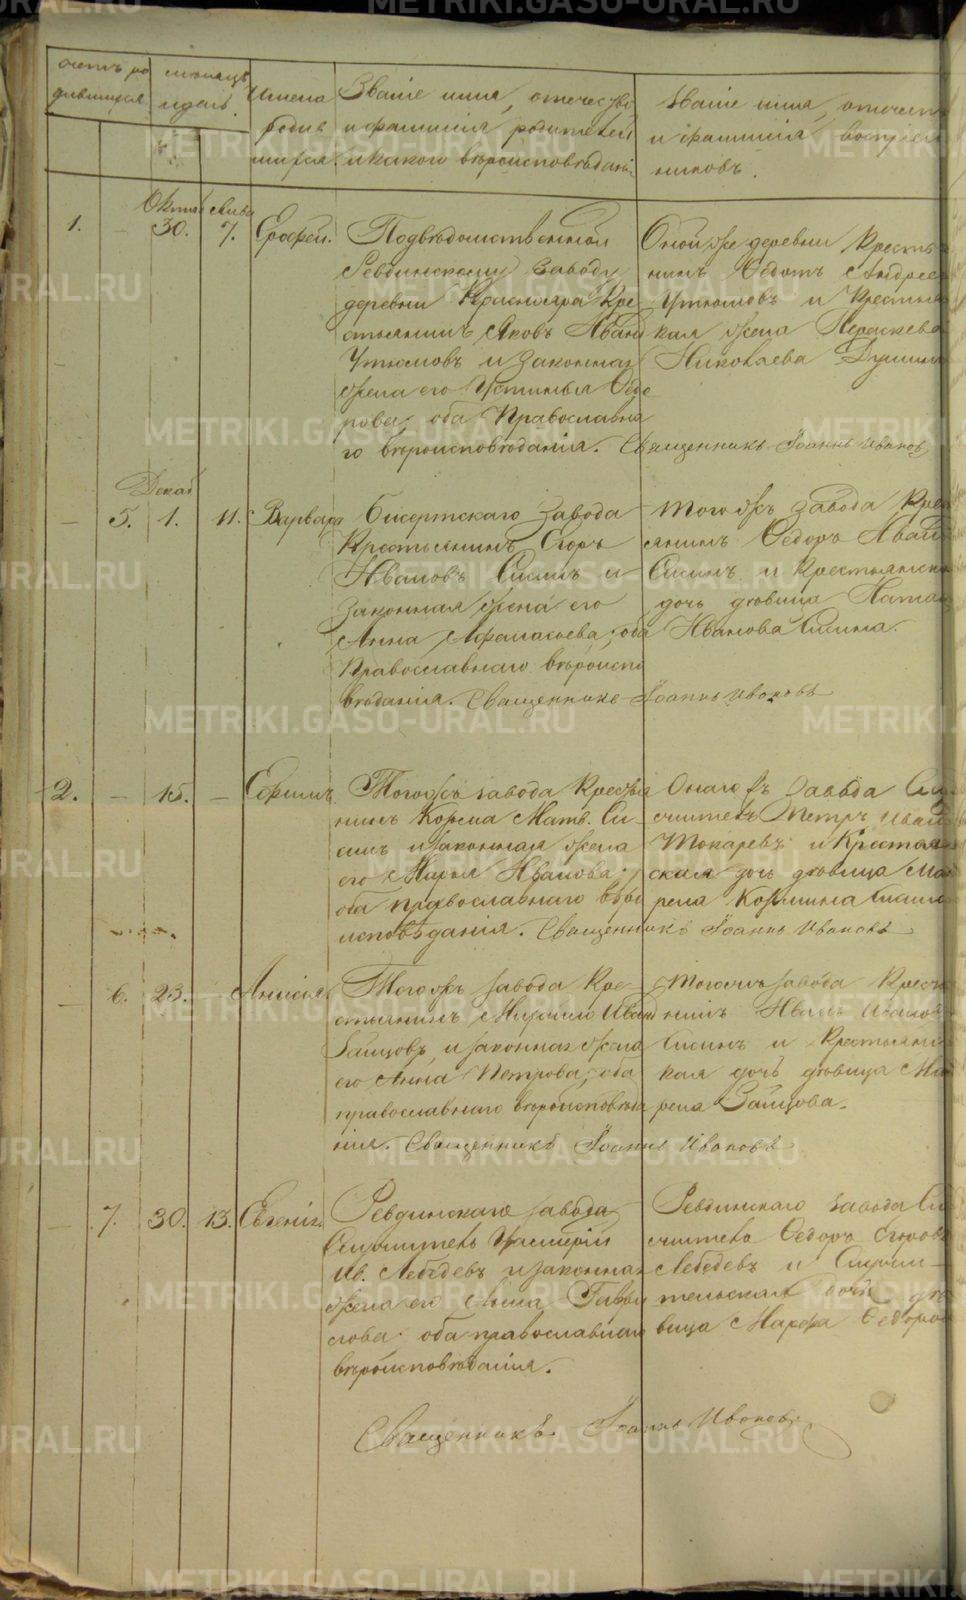 METRIKI.GASO-URAL.RU
счетъ ро
дившихся
мѣсяцъ
и день
Имена
родив
шихся.
Званіе имя, отечество
и фамилія родителей
и какого вѣроисповѣданія
Званіе имя, отечест
и фамилія воспріем
никовъ.
Октяб
1. 30. 7. Ерофей.
Подвѣдомственной
Ревдинскому заводу
деревни Краснояра Кре
стьянинъ Яковъ Иван
Утюмовъ и законная
жена его Устинья Ѳедо
рова, оба Православна
го вѣроисповѣданія. Священникъ Іоаннъ Ивановъ
Оной же деревни Крестья
нинъ Ѳедотъ Андрее
Утюмовъ и Крестьян
кая жена Параскева
Николаева
Декаб
5. 1. 11. Варвара
Бисертскаго завода
Крестьянинъ Егоръ
Ивановъ Сисинъ и
Законная жена его
Анна Афанасьева, оба
Православнаго вѣроиспо
вѣданія. Священникъ Іоаннъ Ивановъ
Того жъ завода Крес
янинъ Ѳедоръ Иван
Сисинъ и Крестьянска
дочь дѣвица Натал
Иванова Сисина.
2. 15. Ефимъ.
Того жъ завода Крестья
нинъ Козма Матв. Си
синъ и законная жена
его Марья Иванова;
оба православнаго вѣро
исповѣданія. Священникъ Іоаннъ Ивановъ
Онаго жъ завода
Петръ Иван
Токаревъ и Крестьян
ская дочь дѣвица Ма
рѳа Козмина Сисин
6. 23. Анисія
Того жъ завода Кре
стьянинъ Иван
Зайцовъ, и законная жена
его Анна Петрова, оба
православнаго вѣроисповѣда
нія. Священникъ Іоаннъ Ивановъ
Того жъ завода Кресть
нинъ Иванъ Иванов
Сисинъ и Крестьянс
кая дочь дѣвица Ма
рѳа Зайцова.
7. 30. 13. Евгенія
Ревдинскаго завода
Ив. Лебедевъ и законная
жена его Анна Гаври
лова; оба православнаго
вѣроисповѣданія.
Ревдинскаго завода
Ѳедоръ Егоров
Лебедевъ и
тельская дочь дѣ
вица Марѳа Ѳедоро
Священникъ Іоаннъ Ивановъ